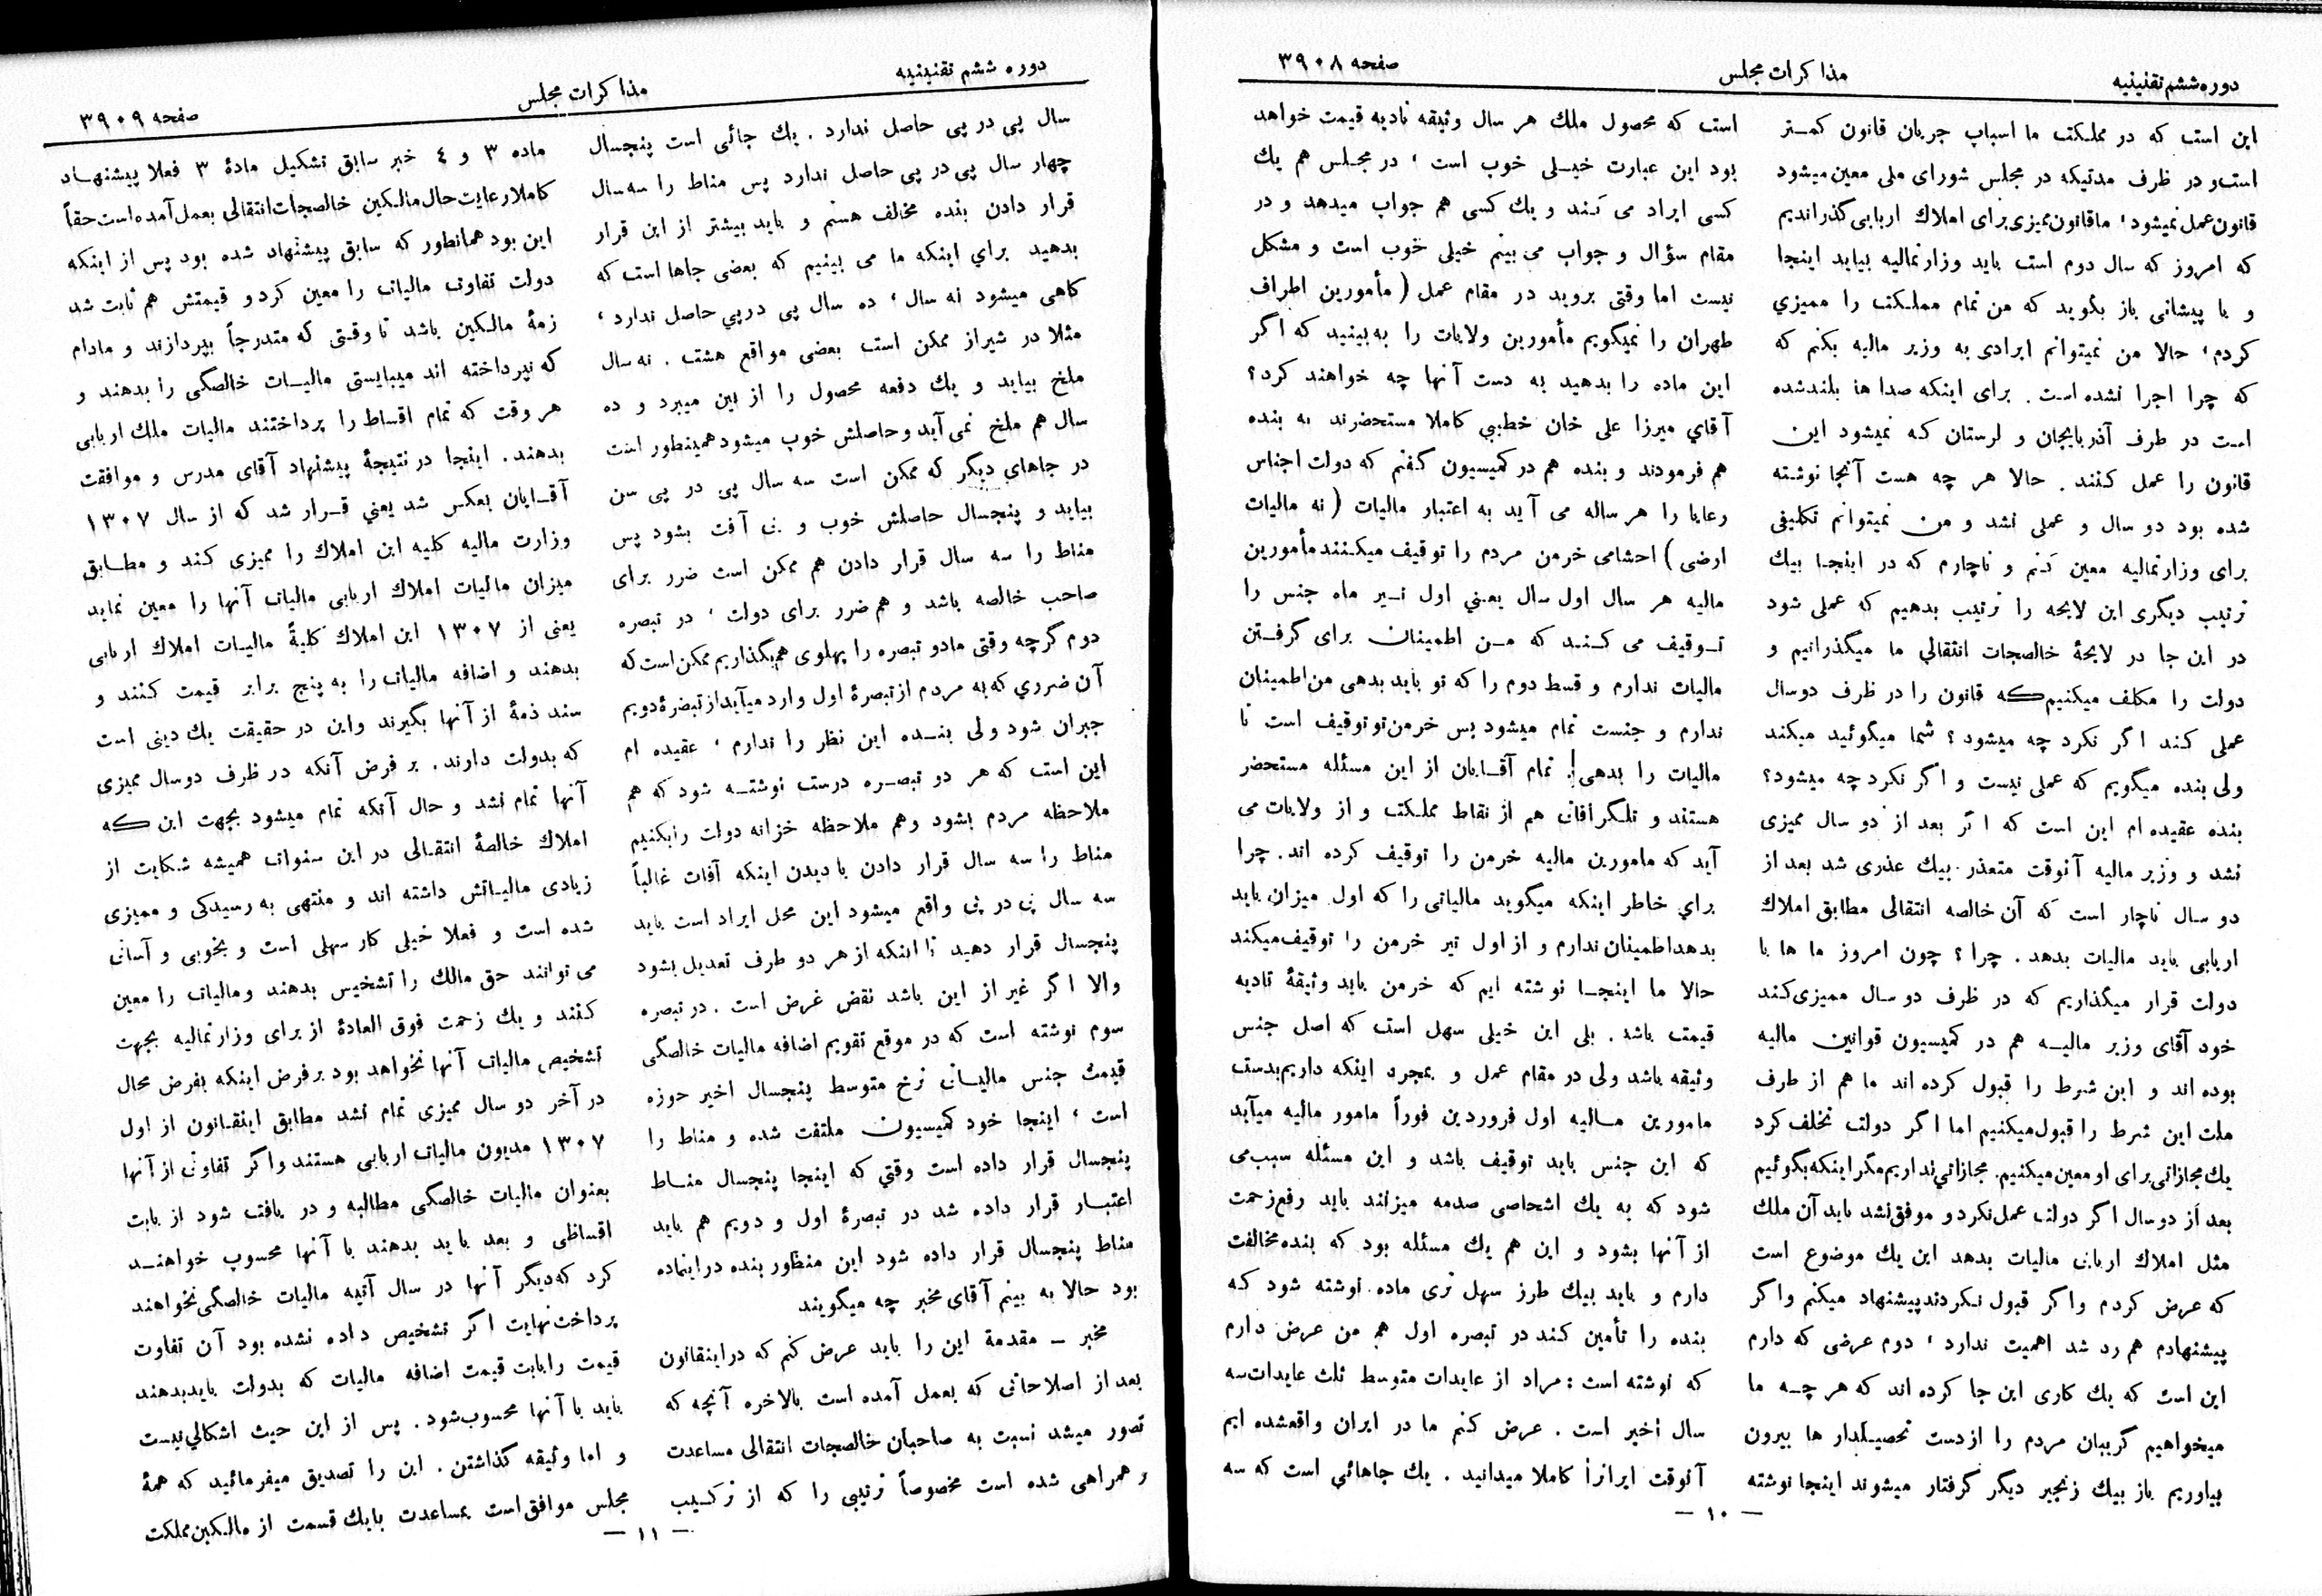 دوره ششم تقنینیه
مذاکرات مجلس
صفحه ۳۹۰۸
این است که در مملکت ما اسباب جریان قانون کمتر
است و در ظرف مدتیکه در مجلس شورای ملی معین میشود
قانون عمل نمیشود، ما قانون ممیزی برای املاک اربابی گذراندیم
که امروز که سال دوم است باید وزارتمالیه بیاید اینجا
و با پیشانی باز بگوید که من تمام مملکت را ممیزی
کردم، حالا من نمیتوانم ایرادی به وزیر مالیه بکنم که
که چرا اجرا نشده است. برای اینکه صدا ها بلند شده
است در طرف آذربایجان و لرستان که نمیشود این
قانون را عمل کنند. حالا هر چه هست آنجا نوشته
شده بود دو سال و عملی نشد و من نمیتوانم تکلیفی
برای وزارتمالیه معین کنم و ناچارم که در اینجا بیك
ترتیب دیگری این لایحه را ترتیب بدهیم که عملی شود
در این جا در لایحهٔ خالصجات انتقالي ما میگذرانیم و
دولت را مکلف میکنیم که قانون را در ظرف دوسال
عملی کند اگر نکرد چه میشود؟ شما میگوئید میکند
ولی بنده میگویم که عملی نیست و اگر نکرد چه میشود؟
بنده عقیده ام این است که اگر بعد از دو سال ممیزی
نشد و وزیر مالیه آنوقت متعذر بیك عذری شد بعد از
دو سال ناچار است که آن خالصه انتقالی مطابق املاك
اربابی باید مالیات بدهد. چرا؟ چون امروز ما ها با
دولت قرار میگذاریم که در ظرف دو سال ممیزی کند
خود آقای وزیر مالیه هم در کمیسیون قوانین مالیه
بوده اند و این شرط را قبول کرده اند ما هم از طرف
ملت این شرط را قبول میکنیم اما اگر دولت تخلف کرد
یك مجازاتی برای او معین میکنیم. مجازاتي نداریم مگر اینکه بگوئیم
بعد از دو سال اگر دولت عمل نکرد و موفق نشد باید آن ملك
مثل املاك اربابی مالیات بدهد این یك موضوع است
که عرض کردم و اگر قبول نکردند پیشنهاد میکنم و اگر
پیشنهادم هم رد شد اهمیت ندارد، دوم عرضی که دارم
این است که یك کاری این جا کرده اند که هر چه ما
میخواهیم گریبان مردم را از دست تحصیلدار ها بیرون
بیاوریم باز بیك زنجیر دیگر گرفتار میشوند اینجا نوشته
است که محصول ملك هر سال وثیقه تادیه قیمت خواهد
بود این عبارت خیلی خوب است، در مجلس هم یك
کسی ایراد می کند و یك کسی هم جواب میدهد و در
مقام سؤال و جواب می بینم خیلی خوب است و مشکل
نیست اما وقتی بروید در مقام عمل (مأمورین اطراف
طهران را نمیگویم مأمورین ولایات را به بینید که اگر
این ماده را بدهید به دست آنها چه خواهند کرد؟
آقاي میرزا علی خان خطیبي کاملا مستحضرند به بنده
هم فرمودند و بنده هم در کمیسیون گفتم که دولت اجناس
رعایا را هر ساله می آید به اعتبار مالیات (نه مالیات
ارضی) احشامی خرمن مردم را توقیف میکنند مأمورین
مالیه هر سال اول سال یعني اول تیر ماه جنس را
توقیف می کنند که من اطمینان برای گرفتن
مالیات ندارم و قسط دوم را که تو باید بدهی من اطمینان
ندارم و جنست تمام میشود پس خرمن تو توقیف است تا
مالیات را بدهی! تمام آقایان از این مسئله مستحضر
هستند و تلگرافات هم از نقاط مملکت و از ولایات می
آید که مامورین مالیه خرمن را توقیف کرده اند. چرا
براي خاطر اینکه میگوید مالیاتی را که اول میزان باید
بدهد اطمینان ندارم و از اول تیر خرمن را توقیف میکند
حالا ما اینجا نوشته ایم که خرمن باید وثیقهٔ تادیه
قیمت باشد. بلی این خیلی سهل است که اصل جنس
وثیقه باشد ولی در مقام عمل و بمجرد اینکه داریم بدست
مامورین مالیه اول فروردین فوراً مامور مالیه میآید
که این جنس باید توقیف باشد و این مسئله سبب می
شود که به یك اشخاصی صدمه میزنند باید رفع زحمت
از آنها بشود و این هم یك مسئله بود که بنده مخالفت
دارم و باید بیك طرز سهل تری ماده نوشته شود که
بنده را تأمین کند در تبصره اول هم من عرض دارم
که نوشته است: مراد از عایدات متوسط ثلث عایدات سه
سال اخیر است. عرض کنم ما در ایران واقعشده ایم
آنوقت ایرانرا کاملا میدانید. یك جاهائی است که سه
— ۱۰ —
دوره ششم تقنینیه
مذاکرات مجلس
صفحه ۳۹۰۹
سال پی در پی حاصل ندارد. یك جائی است پنجسال
چهار سال پی در پی حاصل ندارد پس مناط را سه سال
قرار دادن بنده مخالف هستم و باید بیشتر از این قرار
بدهید براي اینکه ما می بینیم که بعضی جاها است که
گاهی میشود نه سال، ده سال پی در پي حاصل ندارد،
مثلا در شیراز ممکن است بعضی مواقع هشت. نه سال
ملخ بیاید و یك دفعه محصول را از بین میبرد و ده
سال هم ملخ نمی آید و حاصلش خوب میشود همینطور است
در جاهاي دیگر که ممکن است سه سال پی در پی سن
بیاید و پنجسال حاصلش خوب و بی آفت بشود پس
مناط را سه سال قرار دادن هم ممکن است ضرر برای
صاحب خالصه باشد و هم ضرر برای دولت، در تبصره
دوم گرچه وقتی ما دو تبصره را پهلوی هم بگذاریم ممکن است که
آن ضرري که به مردم از تبصرهٔ اول وارد میآید از تبصرهٔ دویم
جبران شود ولی بنده این نظر را ندارم، عقیده ام
این است که هر دو تبصره درست نوشته شود که هم
ملاحظه مردم بشود وهم ملاحظه خزانه دولت را بکنیم
مناط را سه سال قرار دادن با دیدن اینکه آفات غالباً
سه سال پی در پی واقع میشود این محل ایراد است باید
پنجسال قرار دهید تا اینکه از هر دو طرف تعدیل بشود
والا اگر غیر از این باشد نقض غرض است. در تبصره
سوم نوشته است که در موقع تقویم اضافه مالیات خالصگی
قیمت جنس مالیات نرخ متوسط پنجسال اخیر حوزه
است، اینجا خود کمیسیون ملتفت شده و مناط را
پنجسال قرار داده است وقتي که اینجا پنجسال مناط
اعتبار قرار داده شد در تبصرهٔ اول و دویم هم باید
مناط پنجسال قرار داده شود این منظور بنده در اینماده
بود حالا به بینم آقای مخبر چه میگویند
مخبر – مقدمة این را باید عرض کنم که در اینقانون
بعد از اصلاحاتی که بعمل آمده است بالاخره آنچه که
تصور میشد نسبت به صاحبان خالصجات انتقالی مساعدت
و همراهی شده است مخصوصاً ترتیبی را که از ترکیب
ماده ۳ و ٤ خبر سابق تشکیل مادهٔ ۳ فعلا پیشنهاد
کاملا رعایت حال مالکین خالصجات انتقالی بعمل آمده است حقاً
این بود همانطور که سابق پیشنهاد شده بود پس از اینکه
دولت تفاوت مالیات را معین کرد و قیمتش هم ثابت شد
ذمهٔ مالکین باشد تا وقتی که متدرجاً بپردازند و مادام
که نپرداخته اند میبایستی مالیات خالصگی را بدهند و
هر وقت که تمام اقساط را پرداختند مالیات ملك اربابی
بدهند. اینجا در نتیجهٔ پیشنهاد آقای مدرس و موافقت
آقایان بعکس شد یعني قرار شد که از سال ۱۳۰۷
وزارت مالیه کلیه این املاك را ممیزی کند و مطابق
میزان مالیات املاك اربابی مالیات آنها را معین نماید
یعنی از ۱۳۰۷ این املاك کلیةً مالیات املاك اربابی
بدهند و اضافه مالیات را به پنج برابر قیمت کنند و
سند ذمهٔ از آنها بگیرند واین در حقیقت یك دینی است
که بدولت دارند. بر فرض آنکه در ظرف دوسال ممیزی
آنها تمام نشد و حال آنکه تمام میشود بجهت این که
املاك خالصهٔ انتقالی در این سنوات همیشه شکایت از
زیادی مالیاتش داشته اند و منتهی به رسیدگی و ممیزی
شده است و فعلا خیلی کار سهلی است و بخوبی و آسانی
می توانند حق مالك را تشخیس بدهند ومالیات را معین
کنند و یك زحمت فوق العادهٔ از برای وزارتمالیه بجهت
تشخیص مالیات آنها نخواهد بود بر فرض اینکه بفرض محال
در آخر دو سال ممیزی تمام نشد مطابق اینقانون از اول
۱۳۰۷ مدیون مالیات اربابی هستند واگر تفاوتی از آنها
بعنوان مالیات خالصگی مطالبه و در یافت شود از بابت
اقساطی و بعد باید بدهند با آنها محسوب خواهند
کرد که دیگر آنها در سال آتیه مالیات خالصگی نخواهند
پرداخت نهایت اگر تشخیص داده نشده بود آن تفاوت
قیمت رابابت قیمت اضافه مالیات که بدولت باید بدهند
باید با آنها محسوب شود. پس از این حیث اشکالي نیست
و اما وثیقه گذاشتن. این را تصدیق میفرمائید که همهٔ
مجلس موافق است بمساعدت بایك قسمت از مالکین مملکت
— ۱۱ —